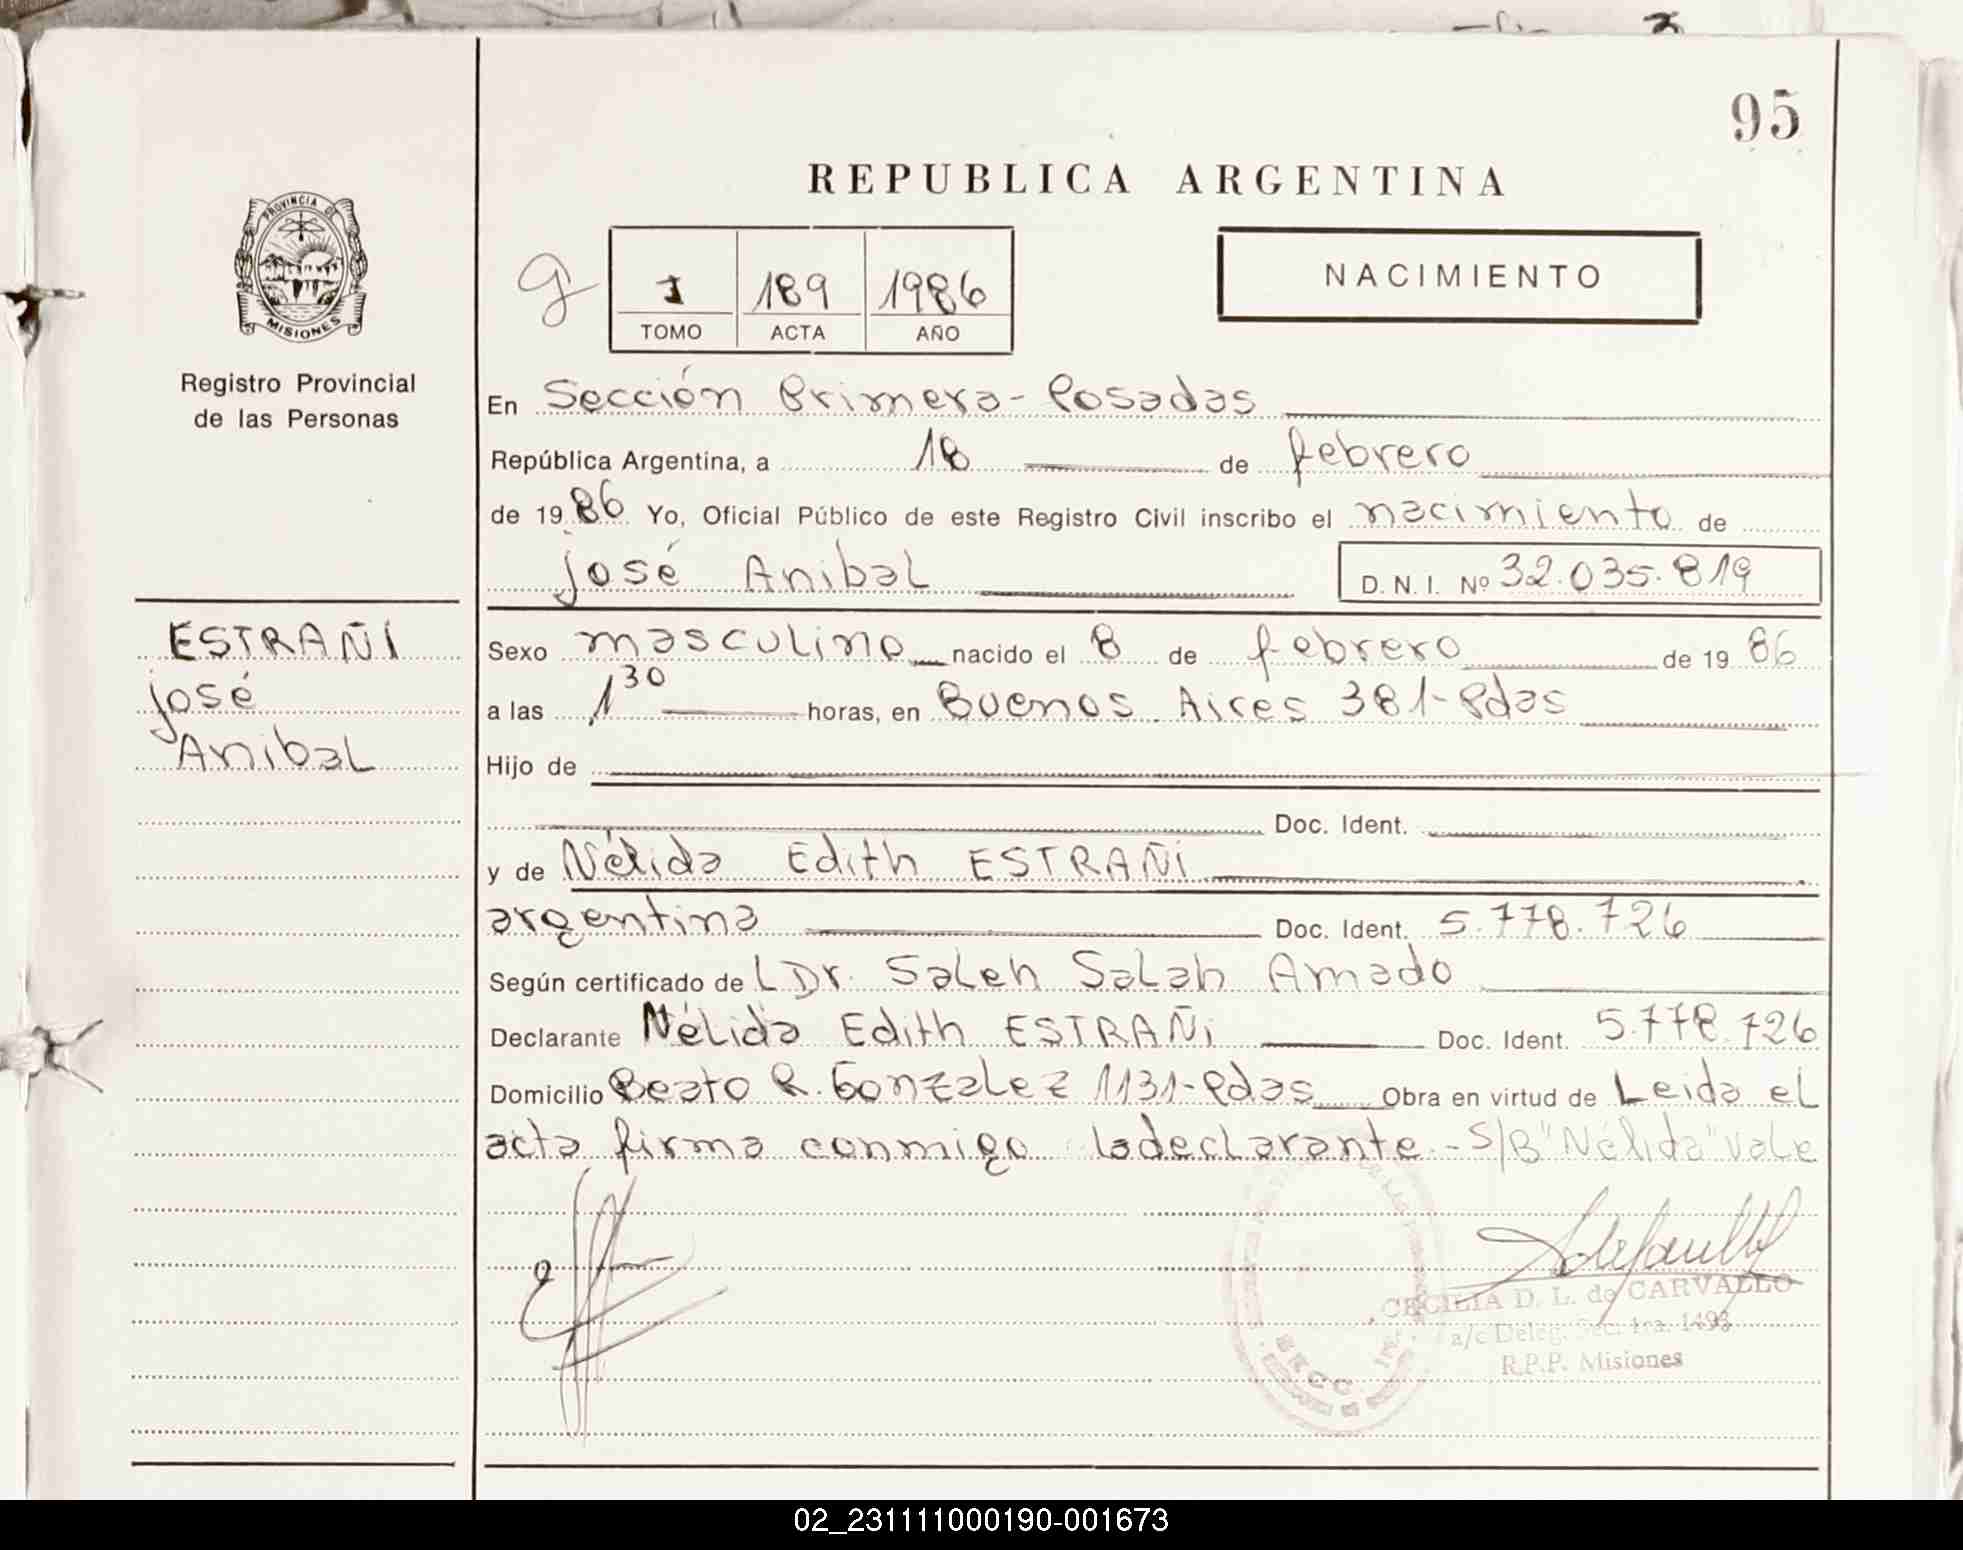 95
REPUBLICA ARGENTINA
PROVINCIA DE
MISIONES
Registro Provincial
de las Personas
1 189 1986
TOMO ACTA AÑO
NACIMIENTO
En Sección Primera - Posadas
República Argentina, a 18 de febrero
de 1986 Yo, Oficial Público de este Registro Civil inscribo el nacimiento de
José Anibal D. N. I. Nº 32.035.819
ESTRAÑI
José
Anibal
Sexo masculino nacido el 8 de febrero de 1986
a las 1 30 horas, en Buenos Aires 381 - Pdas
Hijo de
Doc. Ident.
y de Nélida Edith ESTRAÑI
argentina Doc. Ident. 5.778.726
Según certificado de L Dr. Saleh Salah Amado
Declarante Nélida Edith ESTRAÑi Doc. Ident. 5.778.726
Domicilio Beato R. Gonzalez 1131 - Pdas Obra en virtud de Leida el
acta firma conmigo la declarante. - S/B "Nélida" Vale
CECILIA D. L. de CARVALLO
a/c Deleg. Sec. 1ra. 1493
R.P.P. Misiones
02_231111000190-001673